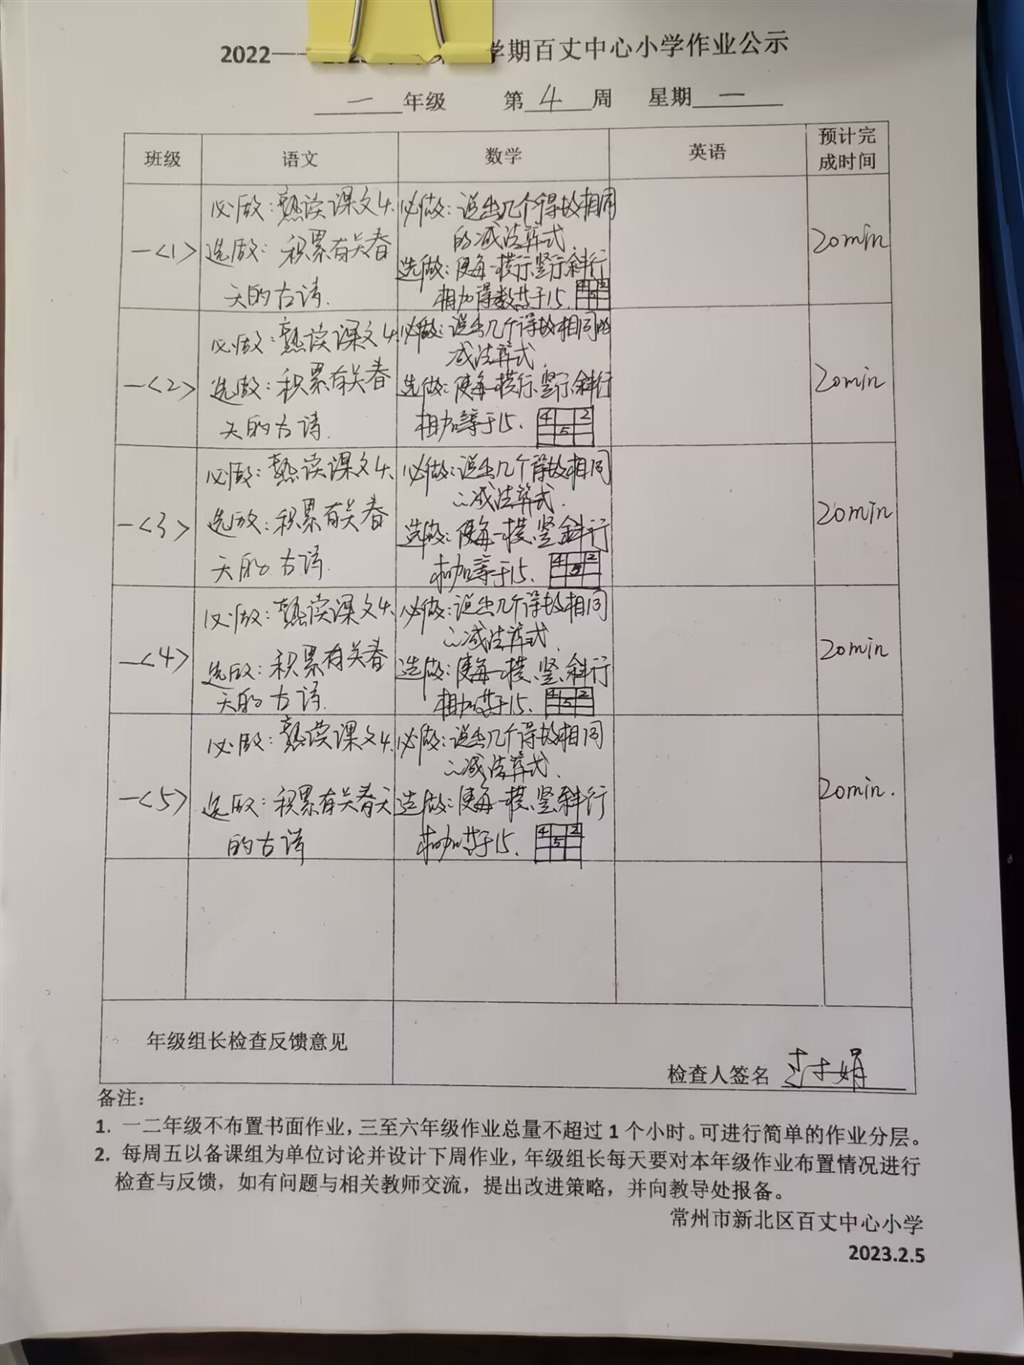 2022—— 学期百丈中心小学作业公示
一 年级 第 4 周 星期 一
班级 语文 数学 英语 预计完成时间
一<1>
必做：熟读课文4.
选做：积累有关春
天的古诗.
必做：说出几个得数相同
的减法算式.
选做：使每一横行、竖行、斜行
相加得数等于15.
20min
一<2>
必做：熟读课文4.
选做：积累有关春
天的古诗.
必做：说出几个得数相同的
减法算式.
选做：使每一横行、竖行、斜行
相加等于15. 4 2
5
20min
一<3>
必做：熟读课文4.
选做：积累有关春
天的古诗.
必做：说出几个得数相同
减法算式.
选做：使每一横、竖、斜行
相加等于15. 4 2
5
20min
一<4>
必做：熟读课文4.
选做：积累有关春
天的古诗.
必做：说出几个得数相同
减法算式.
选做：使每一横、竖、斜行
相加等于15. 4 2
5
20min
一<5>
必做：熟读课文4.
选做：积累有关春天
的古诗
必做：说出几个得数相同
减法算式.
选做：使每一横、竖、斜行
相加等于15. 4 2
5
20min.
年级组长检查反馈意见
检查人签名
备注：
1. 一二年级不布置书面作业，三至六年级作业总量不超过 1 个小时。可进行简单的作业分层。
2. 每周五以备课组为单位讨论并设计下周作业，年级组长每天要对本年级作业布置情况进行
检查与反馈，如有问题与相关教师交流，提出改进策略，并向教导处报备。
常州市新北区百丈中心小学
2023.2.5